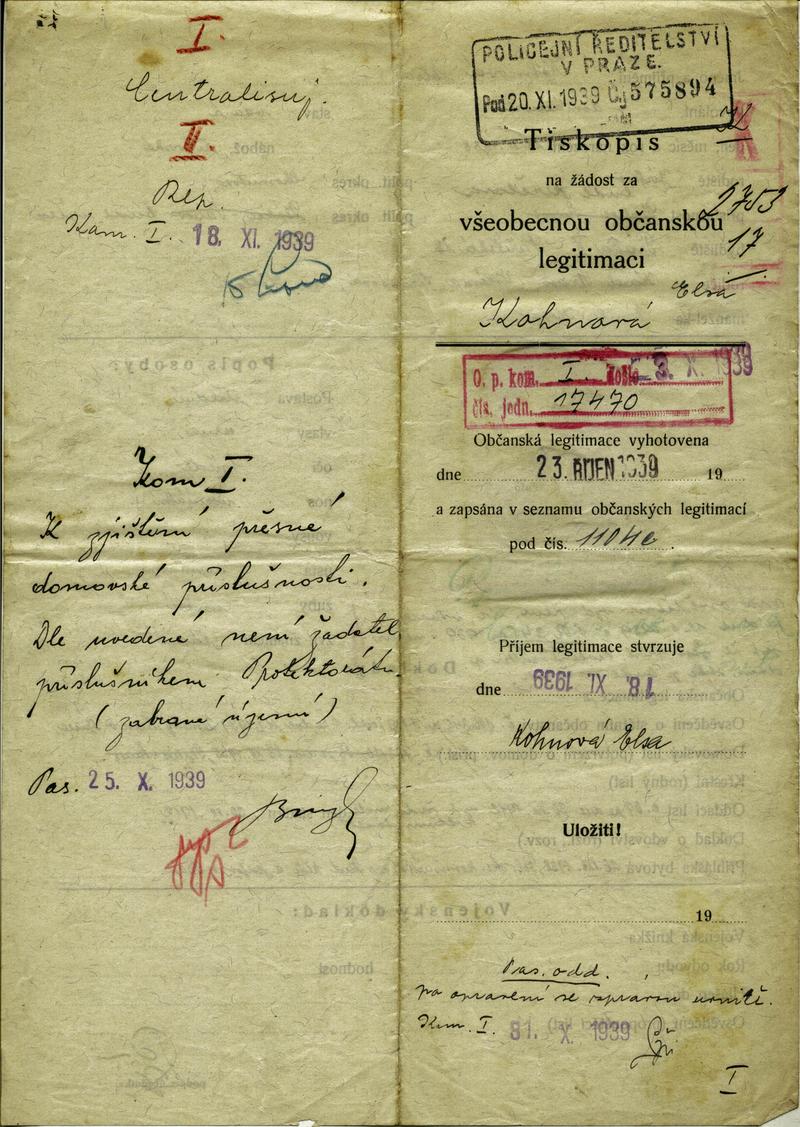 I.
Centralisuj.
II.
Rep.
Kom. I. 18. XI. 1939
Kom I.
K zjištění přesné
domovské příslušnosti.
Dle uvedené není žadatel
příslušníkem Protektorátu.
(zabrané území)
Pas. 25. X. 1939
POLICEJNÍ ŘEDITELSTVÍ
V PRAZE.
Pod 20. XI. 1939 Čj 575894
K
Tiskopis
na žádost za
2753
všeobecnou občanskou
17
legitimaci
Kohnová Elsa
O. p. kom. I. došlo 3. X. 1939
čís. jedn. 17470
Občanská legitimace vyhotovena
dne 23. ŘÍJEN 1939 19
a zapsána v seznamu občanských legitimací
pod čís.
Příjem legitimace stvrzuje
dne 18. XI. 1939
Kohnová Elsa
Uložiti!
19
Pas. odd.
po opravení se zprávou
Kom. I. 31. X. 1939
I